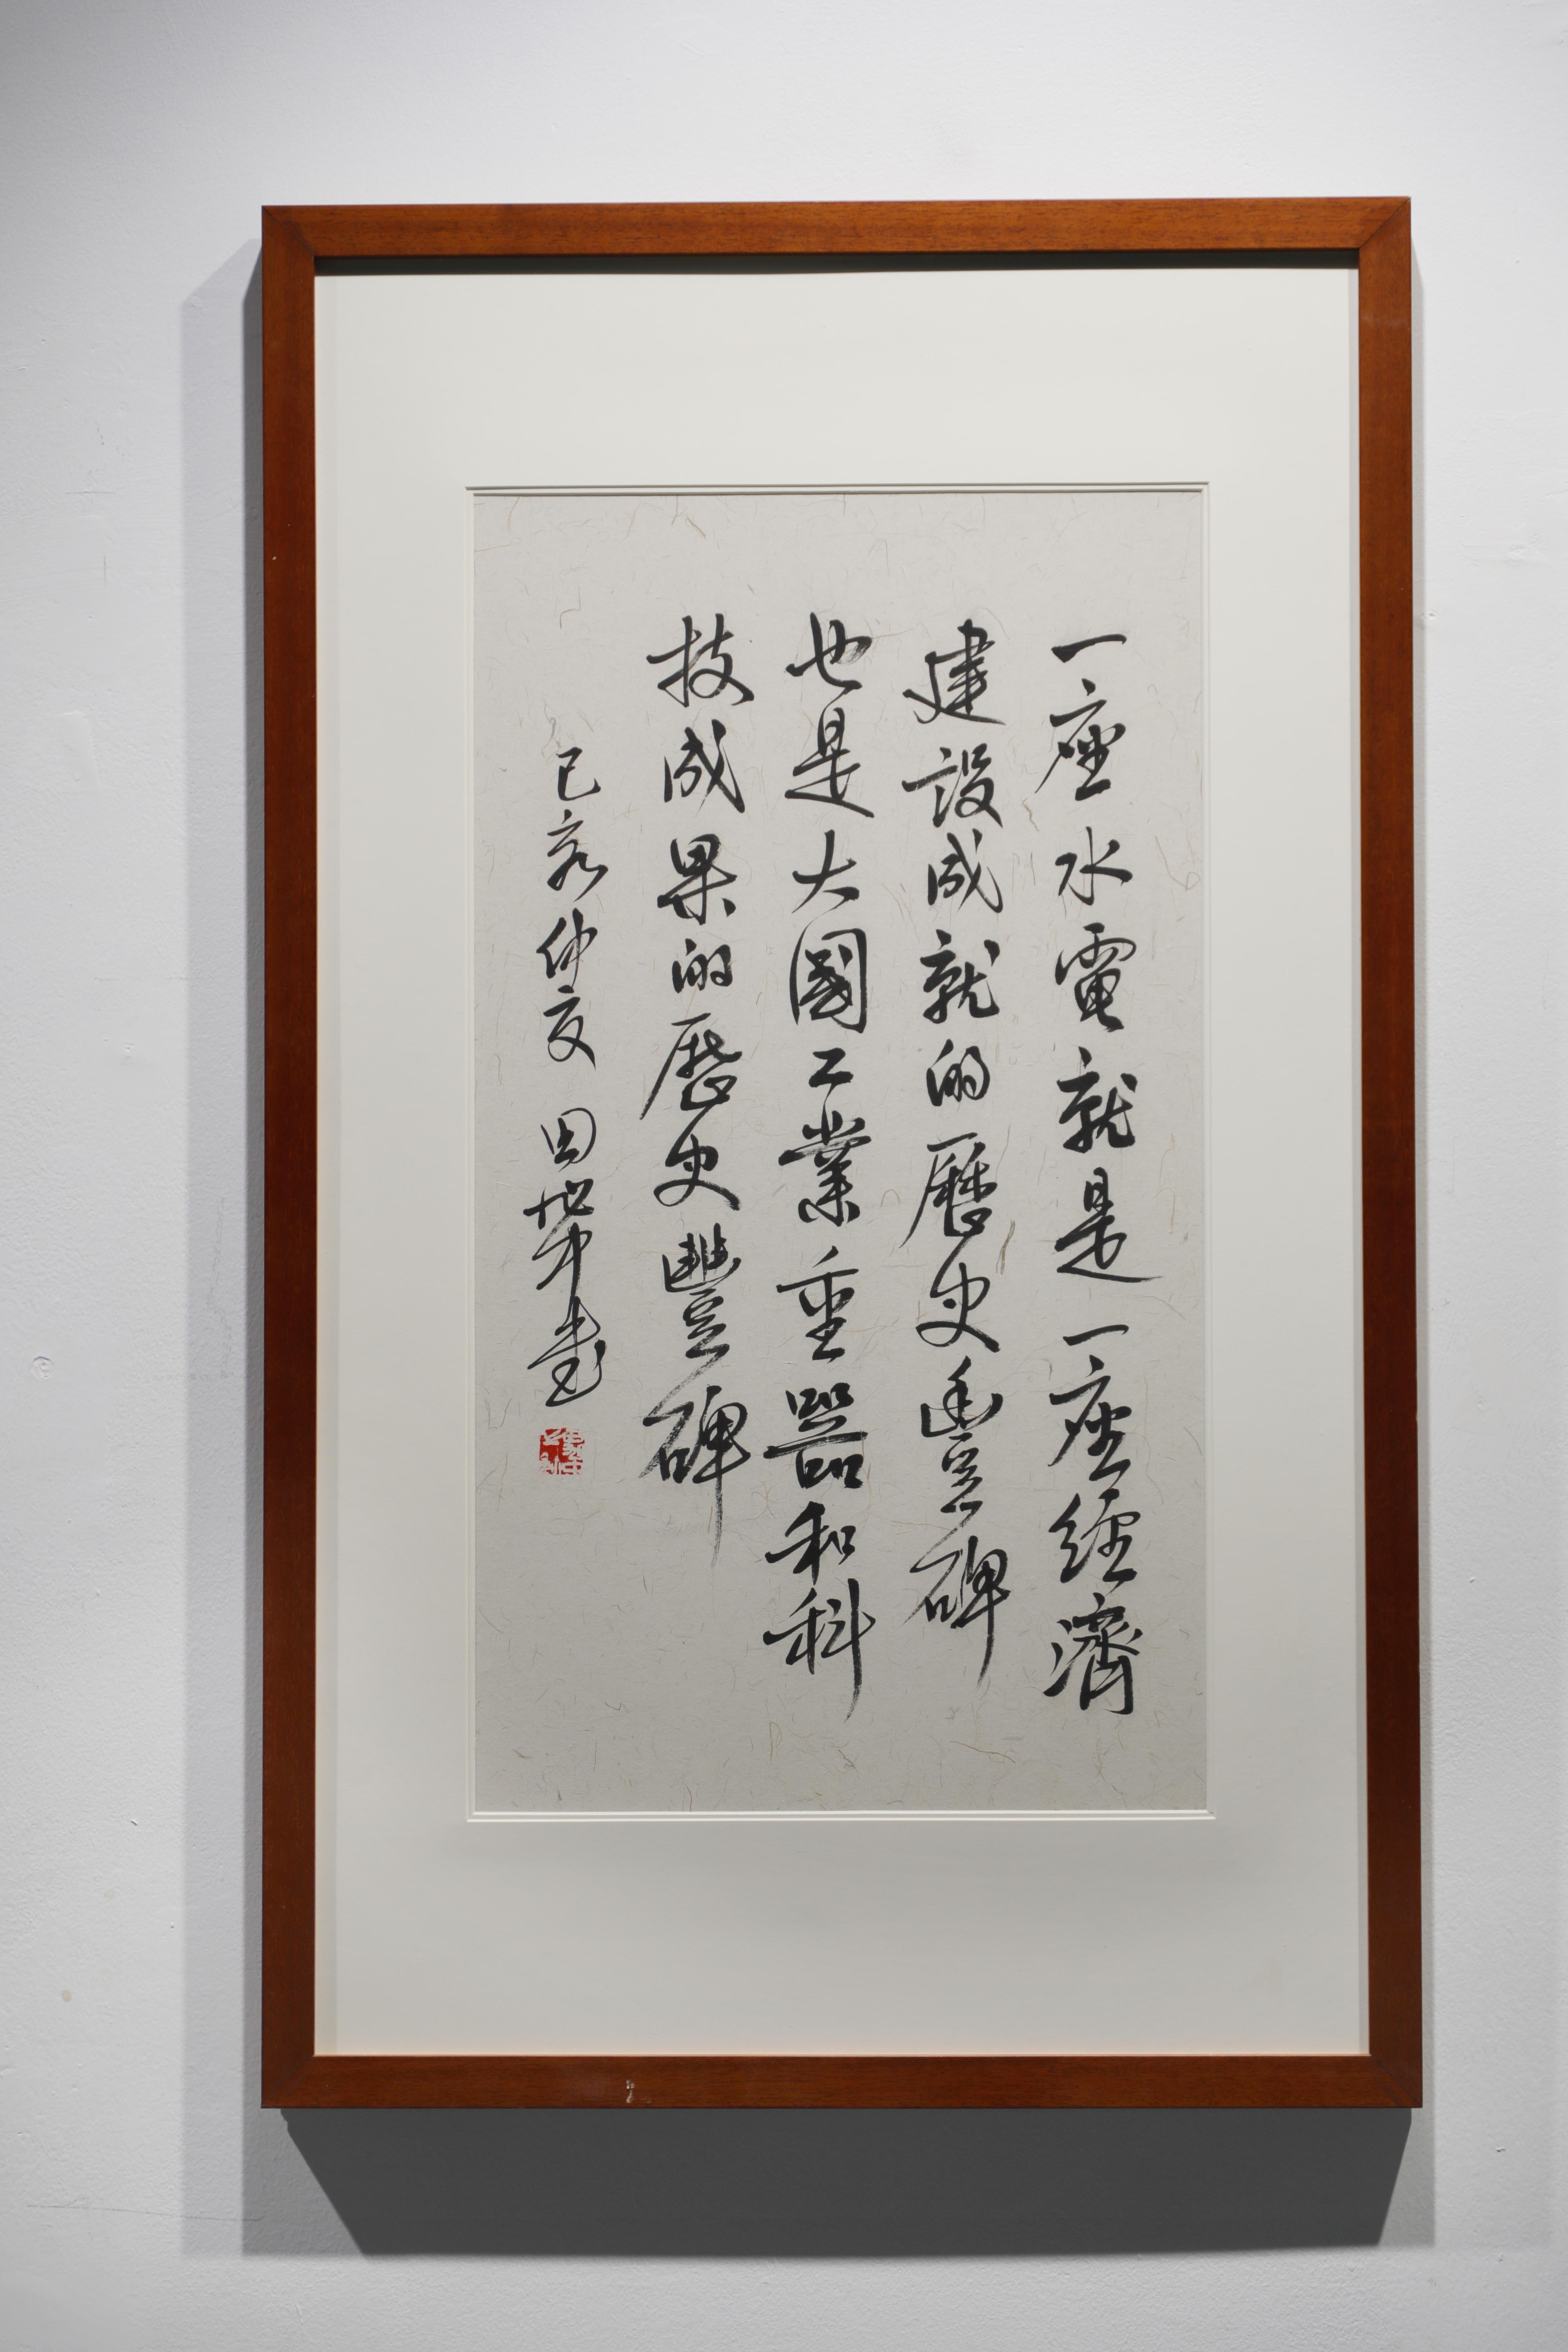 一座水電就是一座經濟
建設成就的歷史豐碑
也是大國工業重器和科
技成果的歷史豐碑
己亥仲夏 田地 書